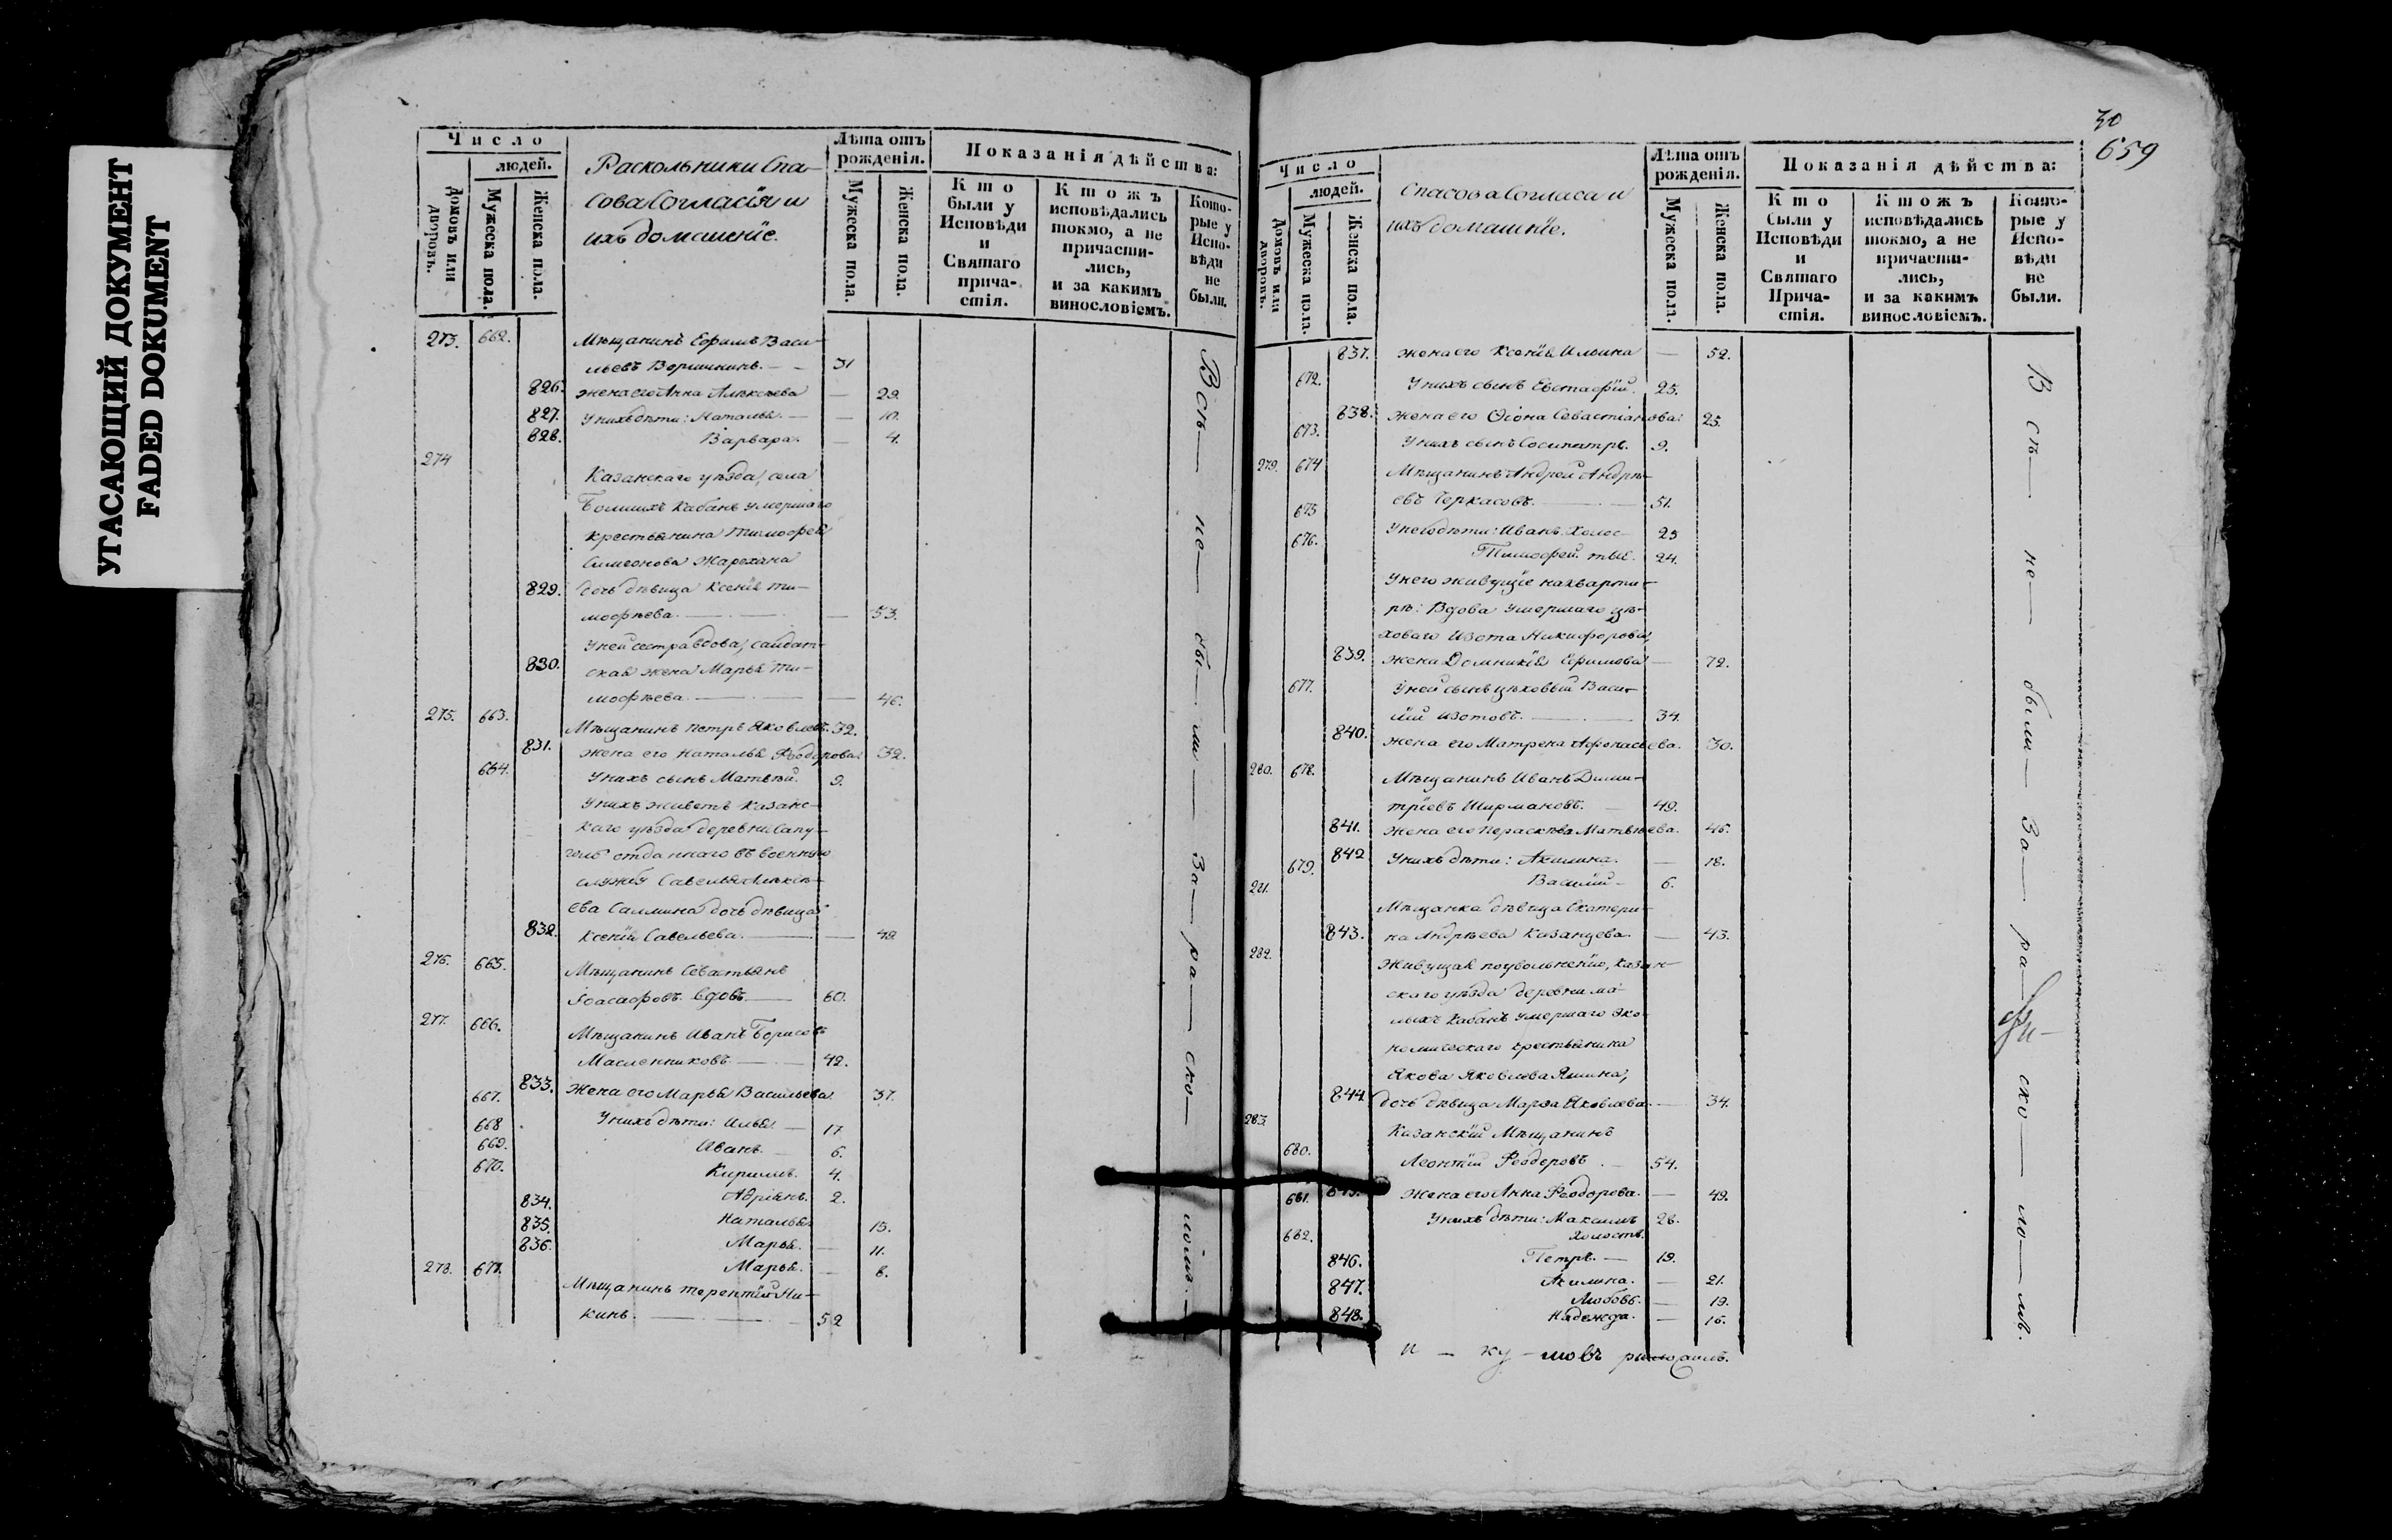 УГАСАЮЩИЙ ДОКУМЕНТ
FADED DOKUMENT
Число
людей.
Домовъ или дворовъ.
Мужеска пола.
Женска пола.
Раскольники Спа-
сова Согласія и
ихъ домашніе.
Лѣта отъ рожденія.
Мужеска пола.
Женска пола.
Показанія дѣйства:
Кто были у Исповѣди и Святаго прича-стія.
Кто жъ исповѣдались токмо, а не причасти-лись, и за какимъ винословіемъ.
Кото-рые у Испо-вѣди не были.
273. 662. Мѣщанинъ Ефимъ Васи-
льевъ 31
826. жена его Анна Алексѣева — 29.
827. У нихъ дѣти: Наталья. — 10.
828. Варвара. — 4.
274
Казанскаго уѣзда, села
Большихъ Кабанъ умершаго
крестьянина Тимофея
Симеонова
829. дочь дѣвица Ксенія Ти-
мофѣева. — 53.
У ней сестра вдова, салдат-
830. ская жена Марья Ти-
мофѣева. — 46.
275. 663. Мѣщанинъ Петръ Яковлевъ. 32.
831. жена его Наталья Ѳеодорова. 32.
664. У нихъ сынъ Матвѣй. 9.
У нихъ живетъ Казанс-
каго уѣзда деревни Сапу-
голь отданнаго въ военную
службу Савелья Алексѣ-
ева Салмина дочь дѣвица
832. Ксенія Савельева. — 49
276. 665. Мѣщанинъ Севастьянъ
Іоасафовъ вдовъ — 60.
277. 666. Мѣщанинъ Иванъ Борисовъ
Масленниковъ — 42.
833. Жена его Марья Васильева. 37.
667. У нихъ дѣти: Илья — 17.
668 Иванъ. 6.
669. Кириллъ. 4.
670. Адріянъ. 2.
834. Наталья 15.
835. Марья. — 11.
836. Марья. — 8.
278. 671. Мѣщанинъ Терентій Ни-
кинъ. — 52
Всѣ — не — бы — ли — За — ра — ско — ломъ.
30
659
Число
людей.
Домовъ или дворовъ.
Мужеска пола.
Женска пола.
Спасова Согласа и
ихъ домашніе.
Лѣта отъ рожденія.
Мужеска пола.
Женска пола.
Показанія дѣйства:
Кто были у Исповѣди и Святаго Прича-стія.
Кто жъ исповѣдались токмо, а не причасти-лись, и за какимъ винословіемъ.
Кото-рые у Испо-вѣди не были.
837. жена его Ксенія Ильина — 52.
672. У нихъ сынъ Евстафій. 25.
838. Жена его Ѳіона Севастіанова: 25.
673. У нихъ сынъ Сосипатръ. 9.
279. 674 Мѣщанинъ Андрей Андрѣ-
евъ Черкасовъ. — 51.
675 У него дѣти: Иванъ Холос- 25
676. Тимофей. тые. 24.
У него живущіе на кварти-
рѣ: Вдова умершаго цѣ-
ховаго Изота Никифорова,
839. жена Домникія Ефимова — 72.
677. У ней сынъ цѣховый Васи-
лій Изотовъ. — 34.
840. жена его Матрена Афонасьева. 30.
280. 678. Мѣщанинъ Иванъ Дими-
тріевъ Ширмановъ. — 49.
841. жена его Параскѣва Матвѣева. 45.
842 У нихъ дѣти: Акилина. — 18.
679. Василій — 6.
281.
Мѣщанка дѣвица Екатери-
843. на Андрѣева Казанцева. — 43.
282.
Живущая по увольненію, Казан-
скаго уѣзда деревни Ма-
лыхъ Кабанъ умершаго эко-
номическаго крестьянина
Якова Яковлева Яшина,
844. дочь дѣвица Марѳа Яковлева. — 34.
283.
Казанскій Мѣщанинъ
680. Леонтій Ѳеодоровъ. — 54.
845. Жена его Анна Ѳеодорова. — 49.
681. У нихъ дѣти: Максимъ 26.
холостъ.
682. Петръ. — 19.
846. Акилина. — 21.
847. Любовь. — 19.
848. Надежда. — 16.
Всѣ — не — были — За — ра — ско — ло — мъ.